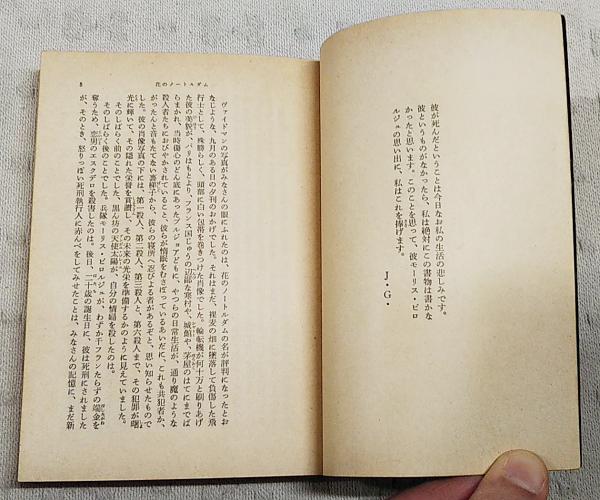 彼が死んだということは今日なお私の生活の悲しみです。
彼というものがなかったら、私は絶対にこの書物は書かな
かったと思います。このことを思って、彼モーリス・ピロ
ルジュの思い出に、私はこれを捧げます。
J・G・
花のノートルダム
5
ヴァイドマンの写真がみなさんの眼にふれたのは、花のノートルダムの名が評判になったとお
なじような、九月のある日の夕刊のおかげでした。それはまだ、裸麦の畑に墜落して負傷した飛
行士として、殊勝らしく、頭部に白い包帯を巻きつけた肖像でした。輪転機が何十万と刷りあげ
た彼の美貌が、パリはもとより、フランス国じゅうの辺鄙な寒村や、城館や、茅屋のはてにまでば
らまかれ、当時傷心のどん底にあったブルジョアどもに、やつらの日常生活が、通り魔のような
殺人者たちにおびやかされていること、彼らが惰眠をむさぼっているあいだに、これも共犯者か、
がったんと音もたてない裏梯子から、彼らの寝所へ忍びよる者があるぞと、思い知らせたもので
した。彼の肖像写真の下には、第一殺人、第二殺人、第三殺人と、第六殺人まで、その犯罪が曙
光に輝いて、その隠れた栄誉を賞讃し、その未来の光栄を準備するかのように見えていました。
そのしばらく前のことでした、黒ん坊の天使太陽が、自分の情婦を殺したのは。
そのしばらく後のことでした。兵隊モーリス・ピロルジュが、わずか千フランたらずの端金を
奪うため、恋男のエスクデロを殺害したのは。後日、二十歳の誕生日に、彼は死刑にされました
が、そのとき、怒りっぽい死刑執行人に赤んべをしてみせたことは、みなさんの記憶に、まだ新